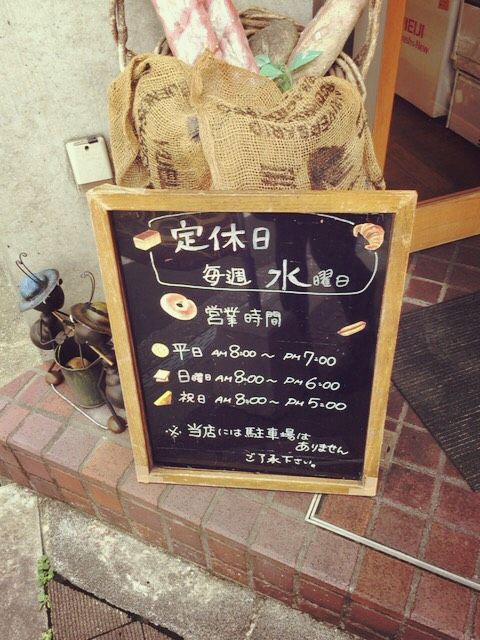 定休日
毎週 水曜日
営業時間
平日 AM 8:00～ PM 7:00
日曜日 AM 8:00～ PM 6:00
祝日 AM 8:00～ PM 5:00
※ 当店には駐車場は
ありません
ご了承下さい。
MEIJI